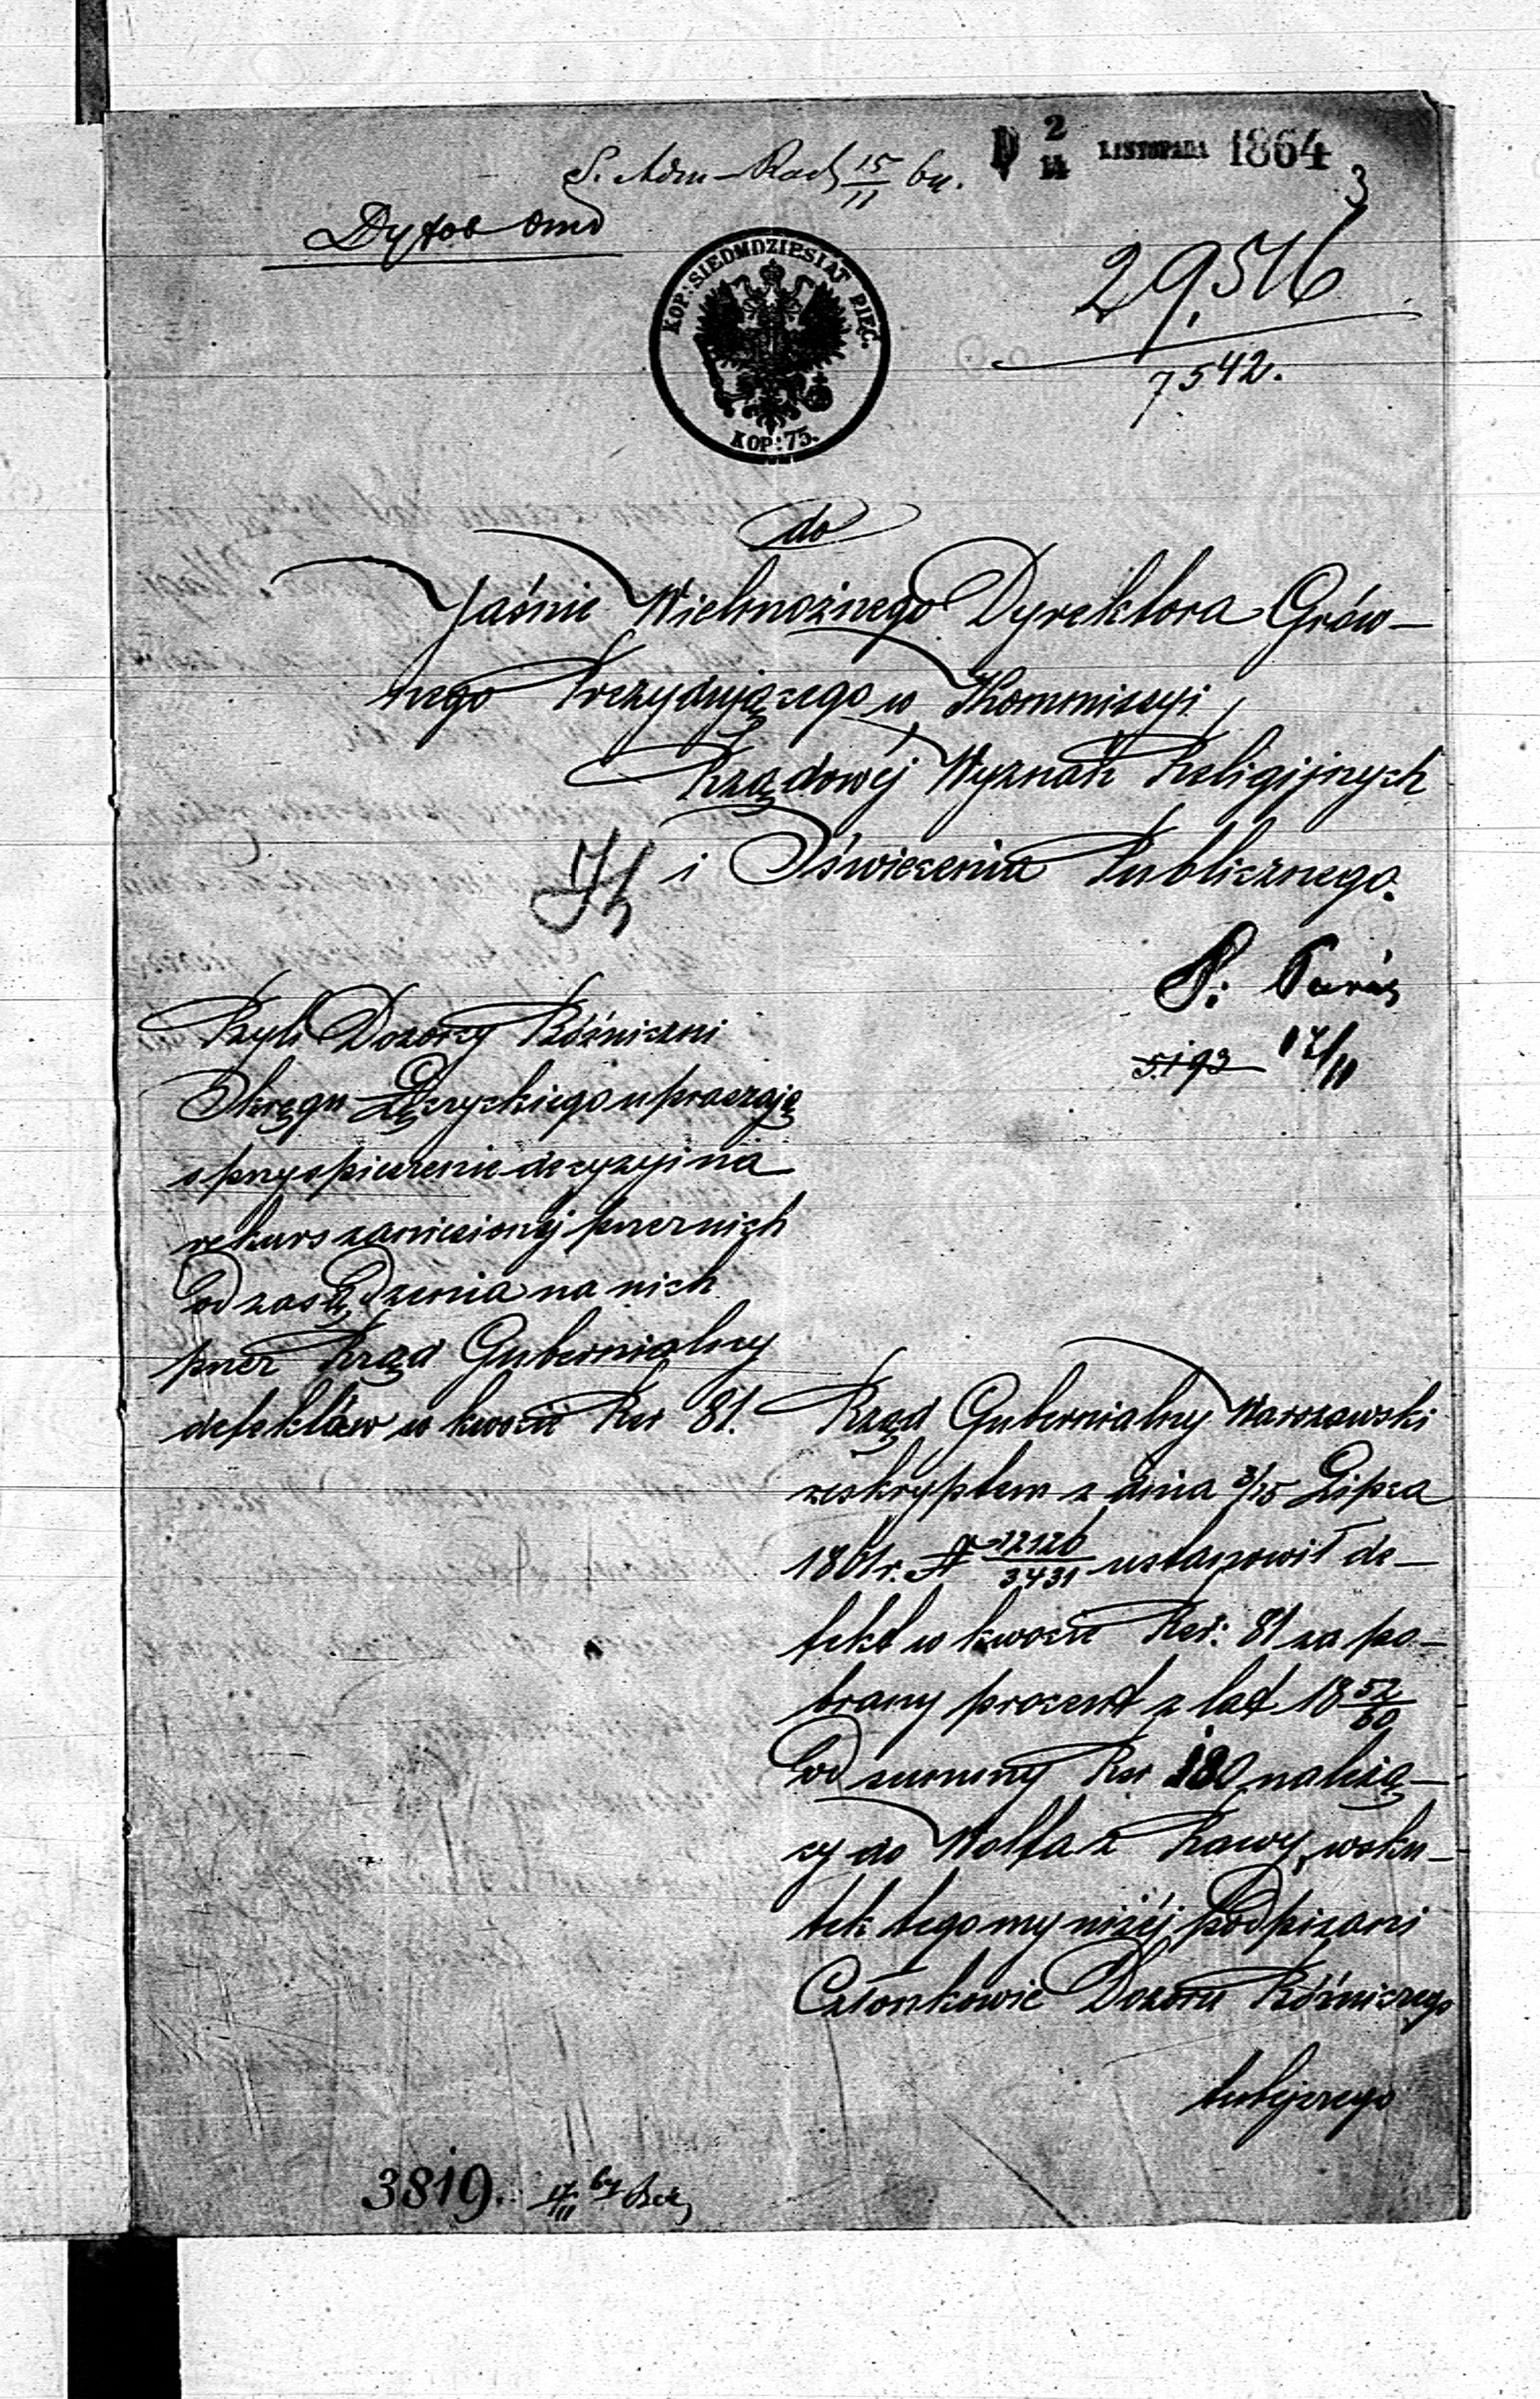 D 2/14 LISTOPADA 1864
3
S. Adm 15/11 64.
29,516
7542.
KOP: SIEDMDZIESIĄT PIĘĆ.
KOP: 75.
do
Jaśnie Wielmożnego Dyrektora Głów—
nego Prezydującego w Kommissyi
Rządowéj Wyznań Religijnych
i Oświecenia Publicznego.
P.
5193 17/11
Byli Dozorcy Bóżniczni
Okręgu Łęczyckiego upraszają
o przyspieszenie decyzyi na
rekurs zaniesionej przez nich
od zasądzenia na nich
przez Rząd Gubernialny
defektów w kwocie Rsr 81.
Rząd Gubernialny Warszawski
reskryptem z dnia 3/15 Lipca
1861r. N 12126/3431 ustanowił de—
fekt w kwocie Rsr: 81 za po—
brany procent z lat 18 52/60
od summy Rsr 180 należą—
cy do Wolfa z Rawy, wsku—
tek tego my niżéj podpisani
Członkowie Dozoru Bóżniczego
tutejszego
3819. 17/11 64